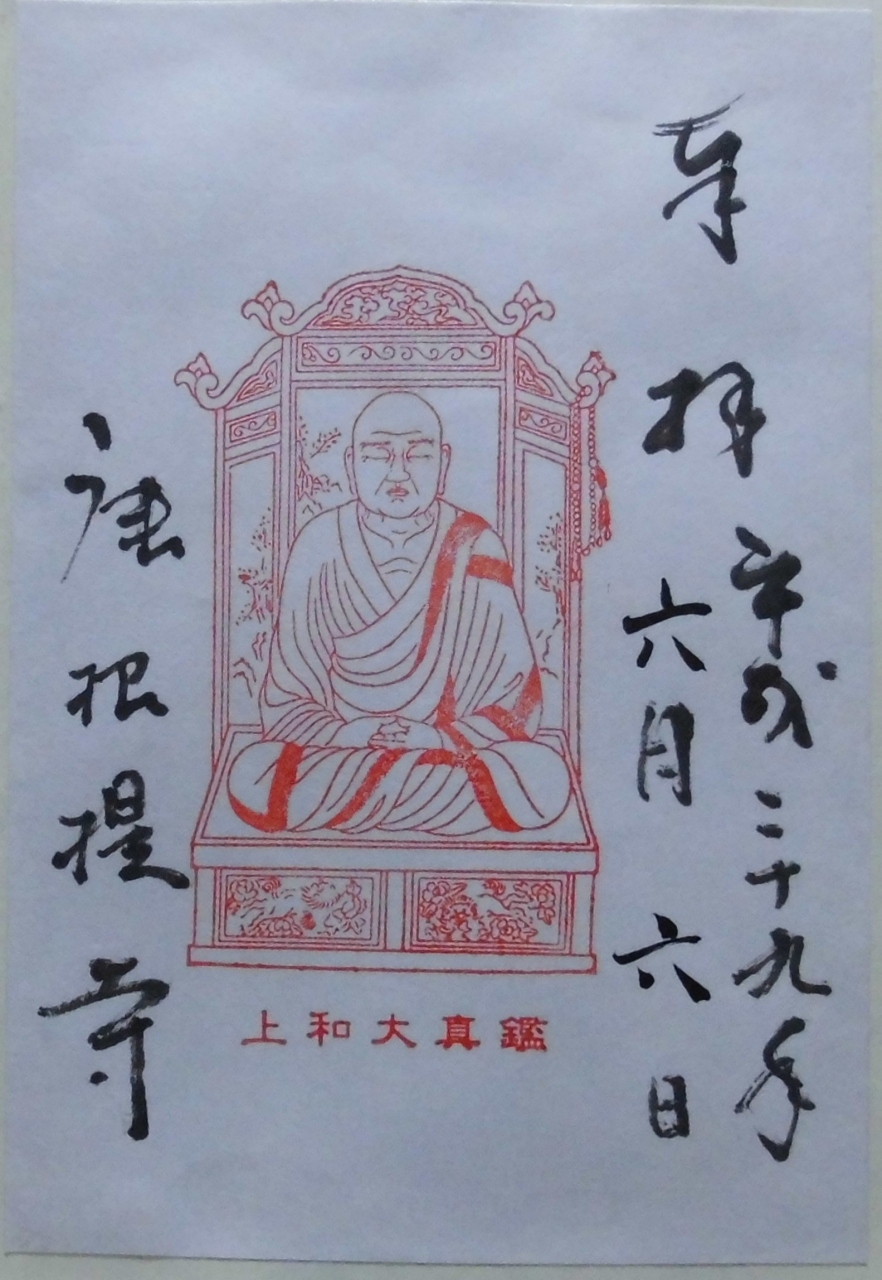 奉拝
平成二十九年
六月六日
鑑真大和上
唐招提寺